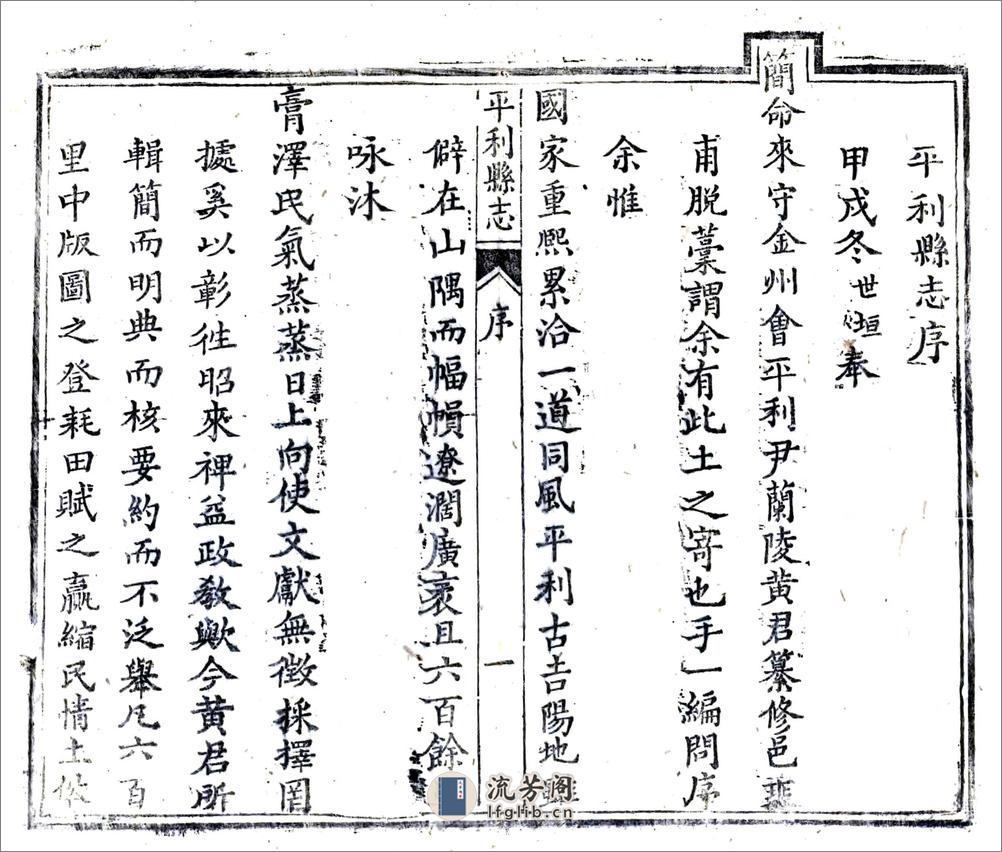 平利縣志序
甲戌冬世垣奉
簡命來守金州會平利尹蘭陵黄君纂修邑乗
甫脱藳謂余有此土之寄也手一編問序
余惟
國家重熈累洽一道同風平利古吉陽地
平利縣志 序 一
僻在山隅而幅幀遼濶廣袤且六百餘
咏沐
膏澤民氣蒸蒸日上向使文獻無徴採擇罔
據奚以彰徃昭來禆益政教歟今黄君所
輯簡而明典而核要約而不泛舉凡六百
里中版圖之登耗田賦之嬴縮民情土俗
流芳阁
lfglib.cn